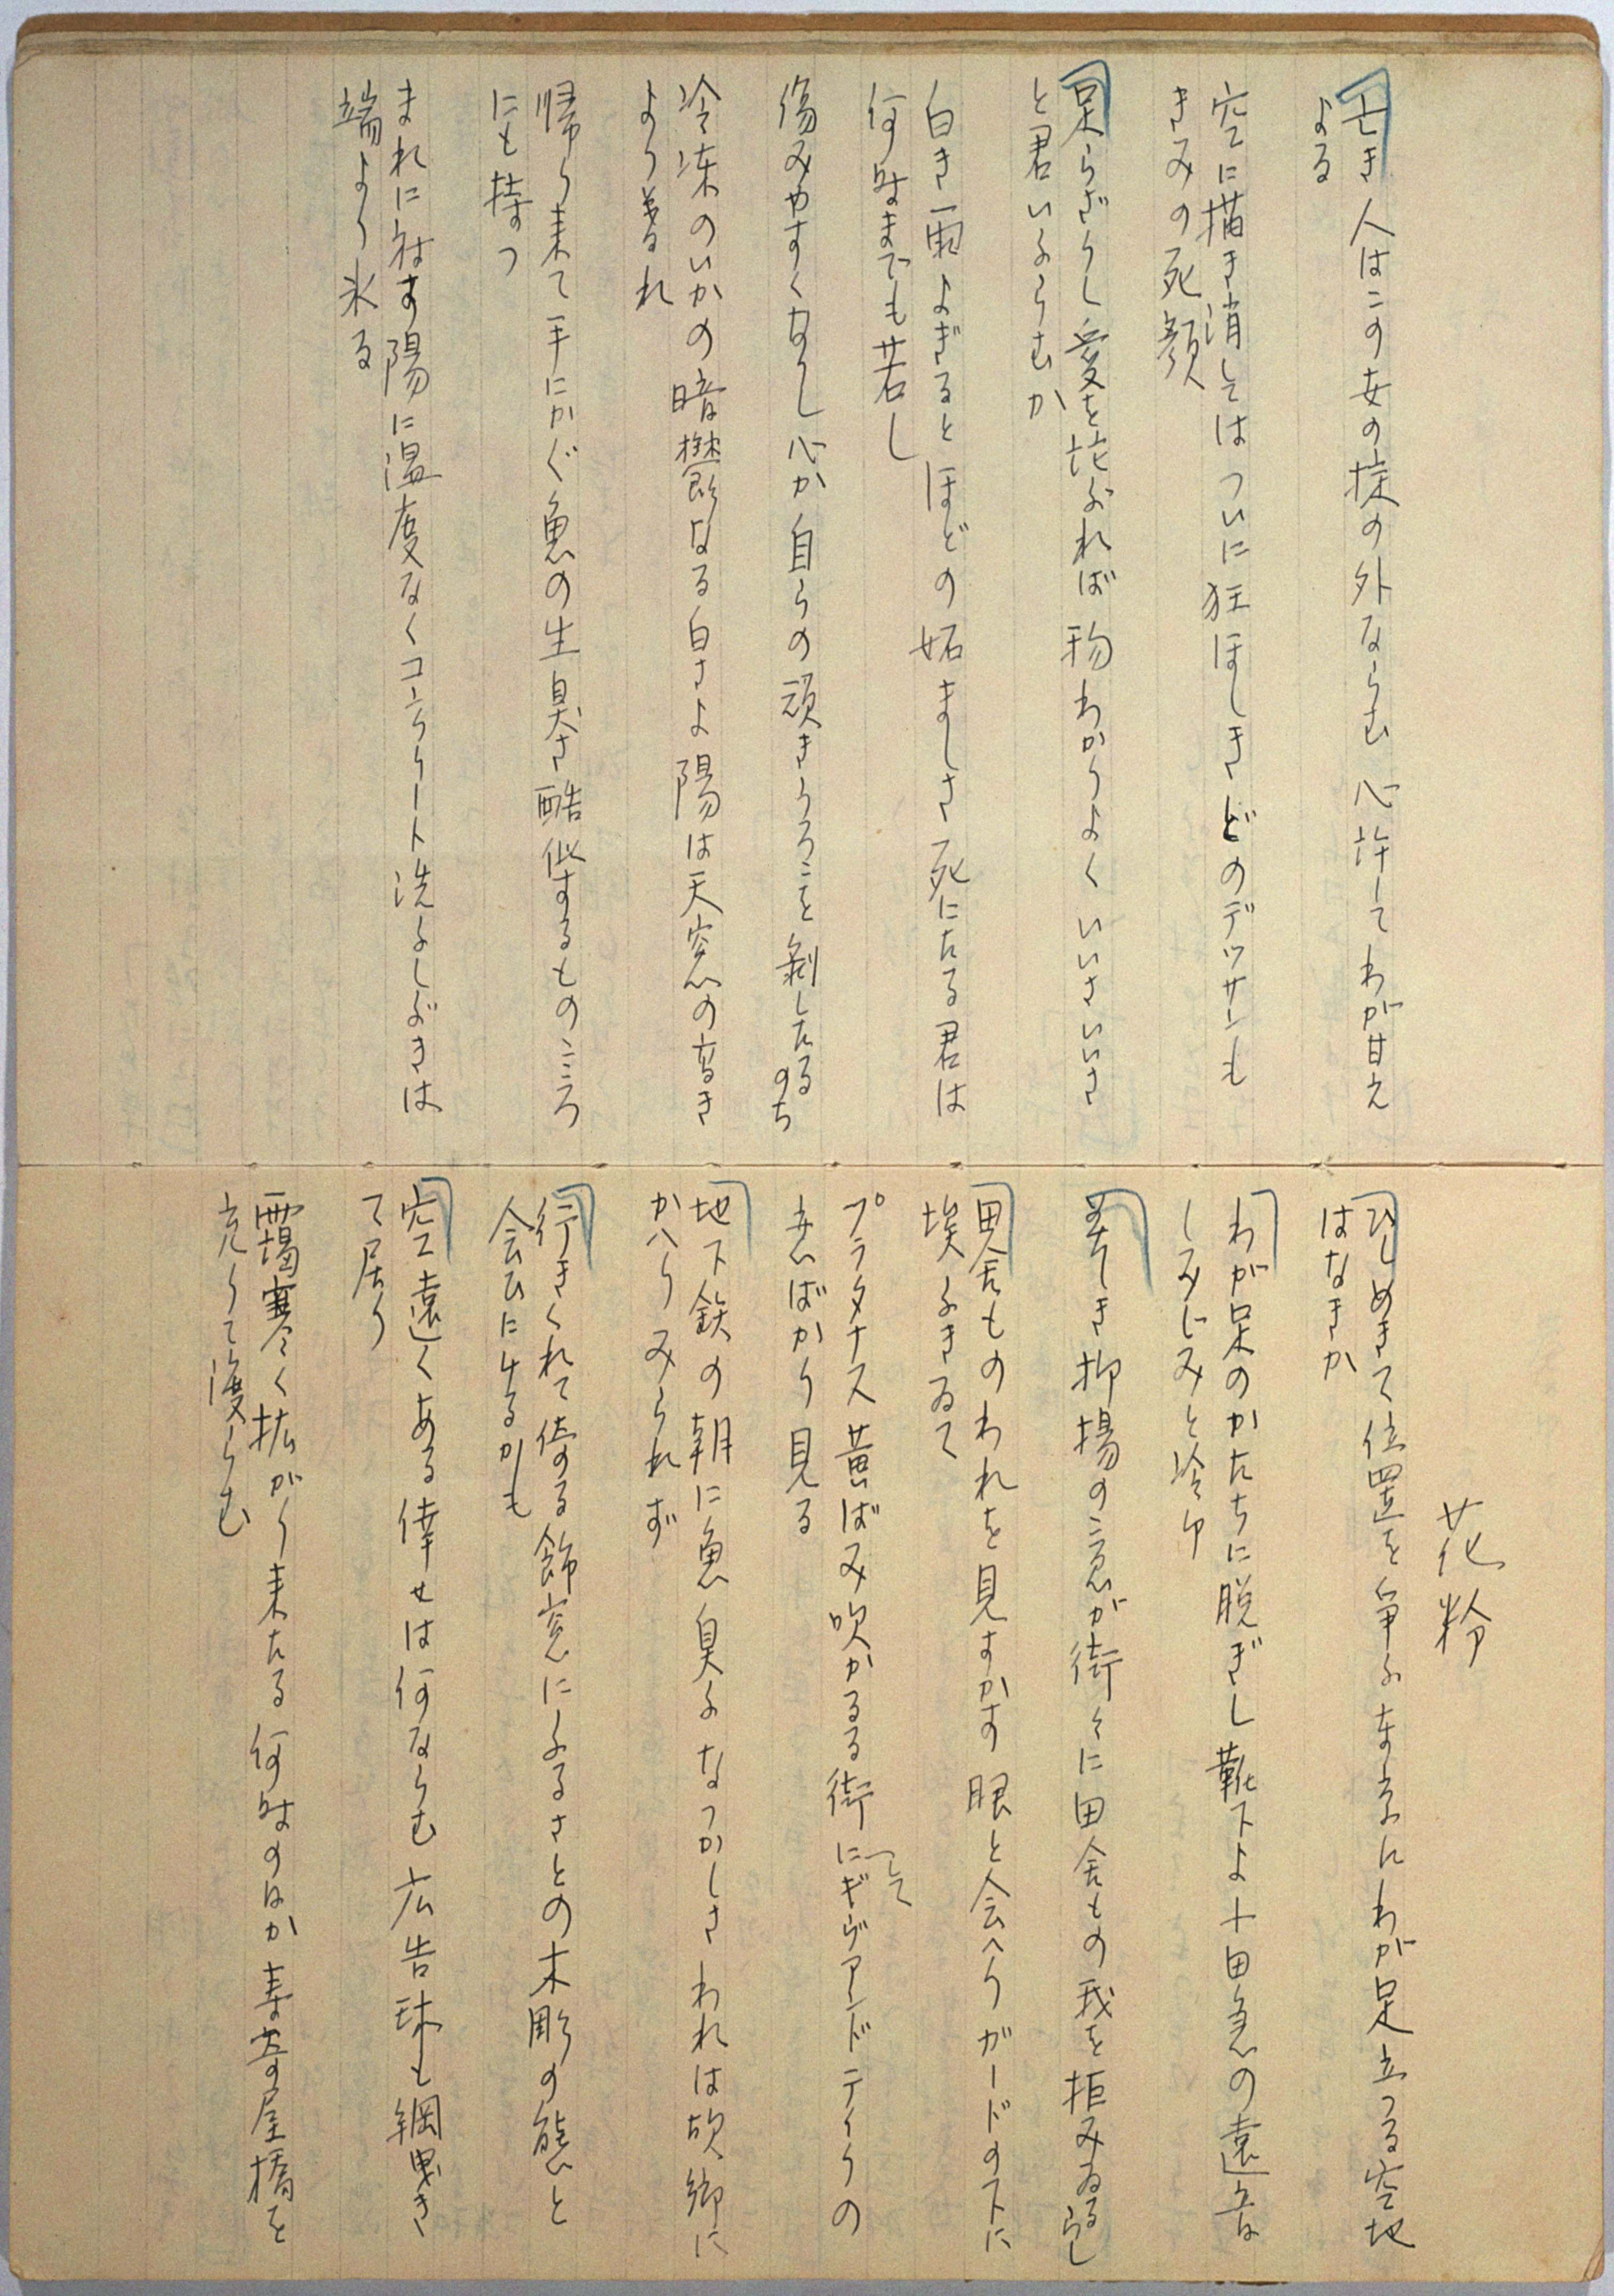 亡き人はこの世の掟の外ならむ心許してわが甘え
よる
空に描き消してはつひに狂ほしきどのデッサンも
きみの死顔
足らざりし愛を詫ぶれば物わかりよくいいさいいさ
と君いふらむか
白き雨よぎるとほどの妬ましさ死にたる君は
何時までも若し
傷みやすくなりし心か自らの頑きうろこを剝したる
のち
冷凍のいかの暗鬱なる白さよ陽は天窓の高き
より来れ
帰り来て手にかぐ魚の生臭さ酷似するものこころ
にも持つ
まれに射す陽に温度なくコンクリート洗ふしぶきは
端より氷る
花粉
ひしめきて位置を争ふ東京にわが足立つる空地
はなきか
わが足のかたちに脱ぎし靴下よ小田急の遠音
しみじみと冷ゆ
美しき抑揚の言葉が街々に田舎もの我を拒みゐるらし
田舎ものわれを見すかす眼と会へりガードの下に
埃ふきゐて
プラタナス黄ばみ吹かるる街にしてギヴアンドテイクの
恋ばかり見る
地下鉄の朝に魚臭ふなつかしさわれは故郷に
かへりみられず
行きくれて倚る飾窓にふるさとの木彫の熊と
会ひにけるかも
空遠くある倖せは何ならむ広告球も綱曳き
て居り
靄寒く拡がり来たる何時のほか数寄屋橋を
売りて渡らむ